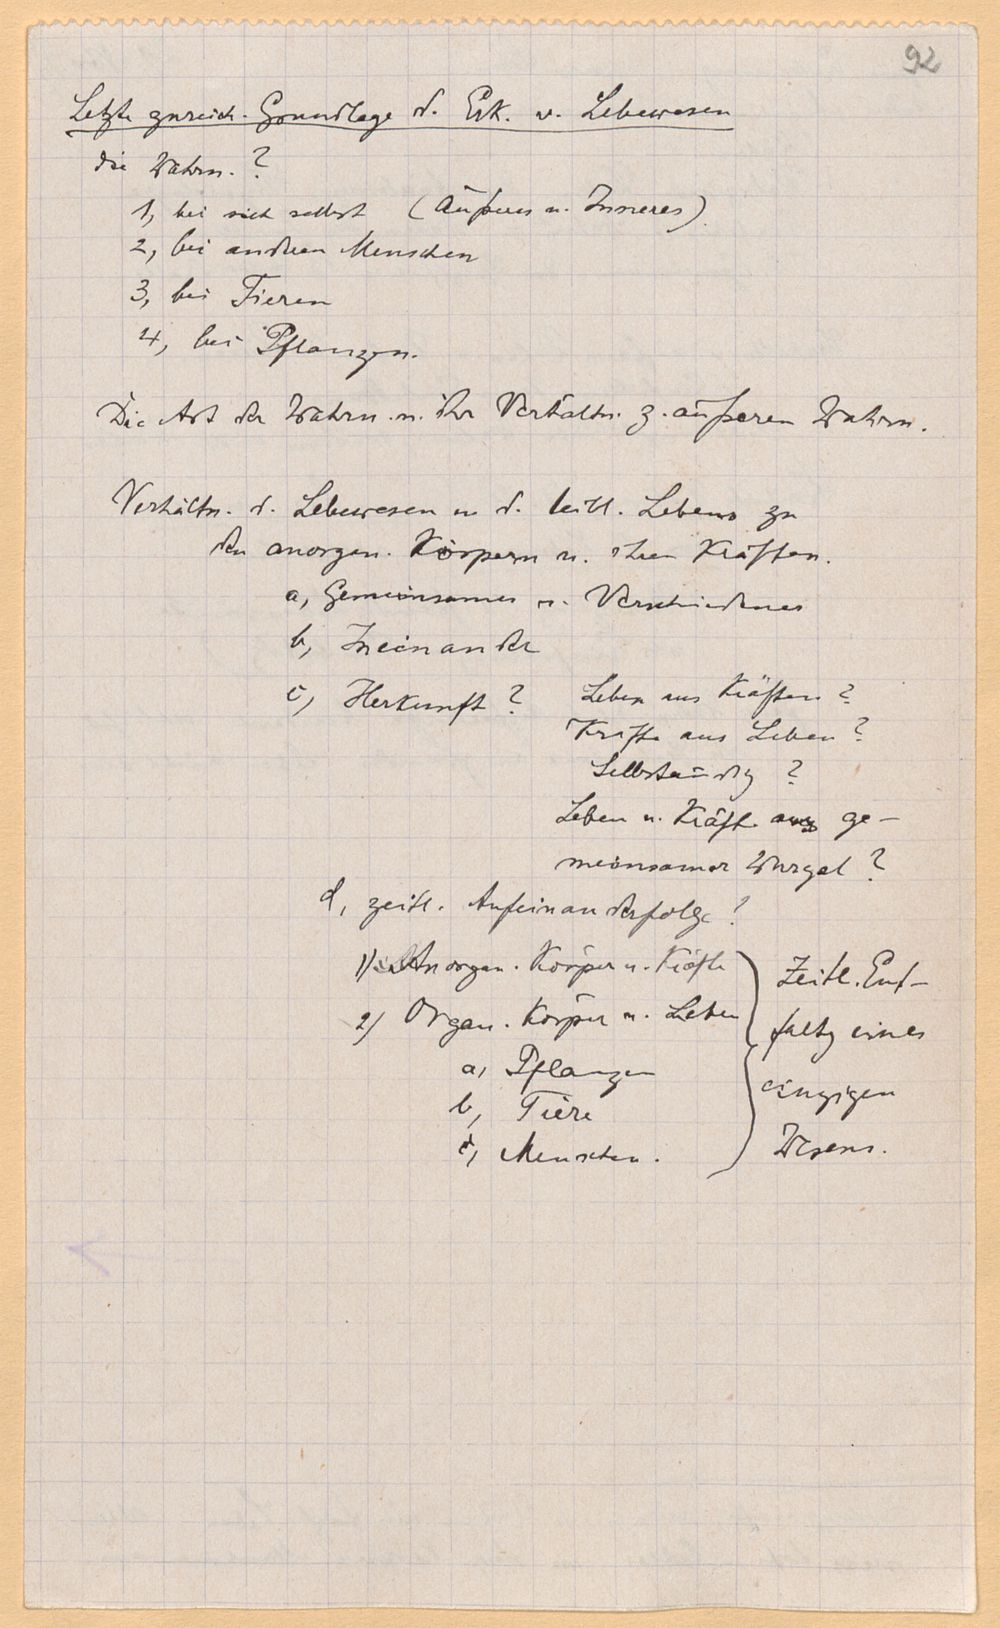 92
Letzte zureich. Grundlage d. Erk. v. Lebewesen
die Wahrn.?
1, bei sich selbst (Äußeres u. Inneres)
2, bei anderen Menschen
3, bei Tieren
4, bei Pflanzen.
Die Art der Wahrn. u. ihr Verhältn. z. äußeren Wahrn.
Verhältn. d. Lebewesen u. d. Lebens zu
den anorgan. Körpern u. ihren Kräften.
a, Gemeinsames u. Verschiedenes
b, Ineinander
c, Herkunft? Leben aus Kräften?
Kräfte aus Leben?
Selbständig?
Leben u. Kräfte aus ge-
meinsamer Wurzel?
d, zeitl. Aufeinanderfolge!
1) Anorgan. Körper u. Kräfte
2) Organ. Körper u. Leben
a, Pflanzen
b, Tiere
c, Menschen.
Zeitl. Ent-
faltg eines
einzigen
Wesens.